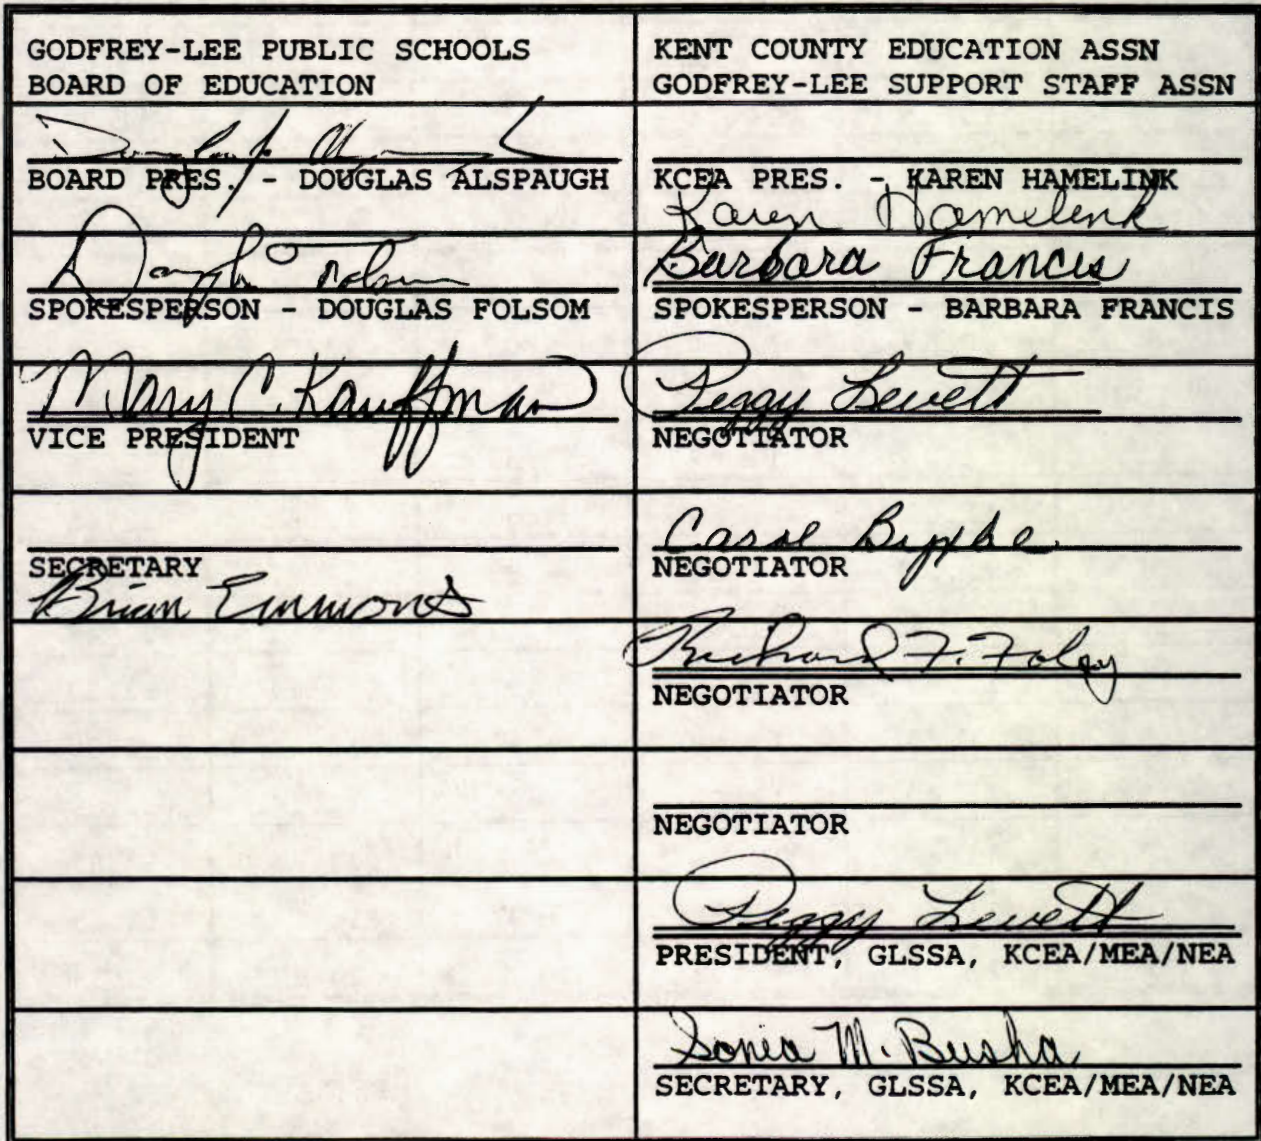 GODFREY-LEE PUBLIC SCHOOLS
BOARD OF EDUCATION
KENT COUNTY EDUCATION ASSN
GODFREY-LEE SUPPORT STAFF ASSN
BOARD PRES. - DOUGLAS ALSPAUGH
KCEA PRES. - KAREN HAMELINK
Karen Hamelink
Douglas Folsom
SPOKESPERSON - DOUGLAS FOLSOM
Barbara Francis
SPOKESPERSON - BARBARA FRANCIS
Mary C. Kauffman
VICE PRESIDENT
Peggy Levett
NEGOTIATOR
SECRETARY
Brian Emmons
Carol
NEGOTIATOR
Richard F. Foley
NEGOTIATOR
NEGOTIATOR
Peggy Levett
PRESIDENT, GLSSA, KCEA/MEA/NEA
Sonia M. Busha
SECRETARY, GLSSA, KCEA/MEA/NEA